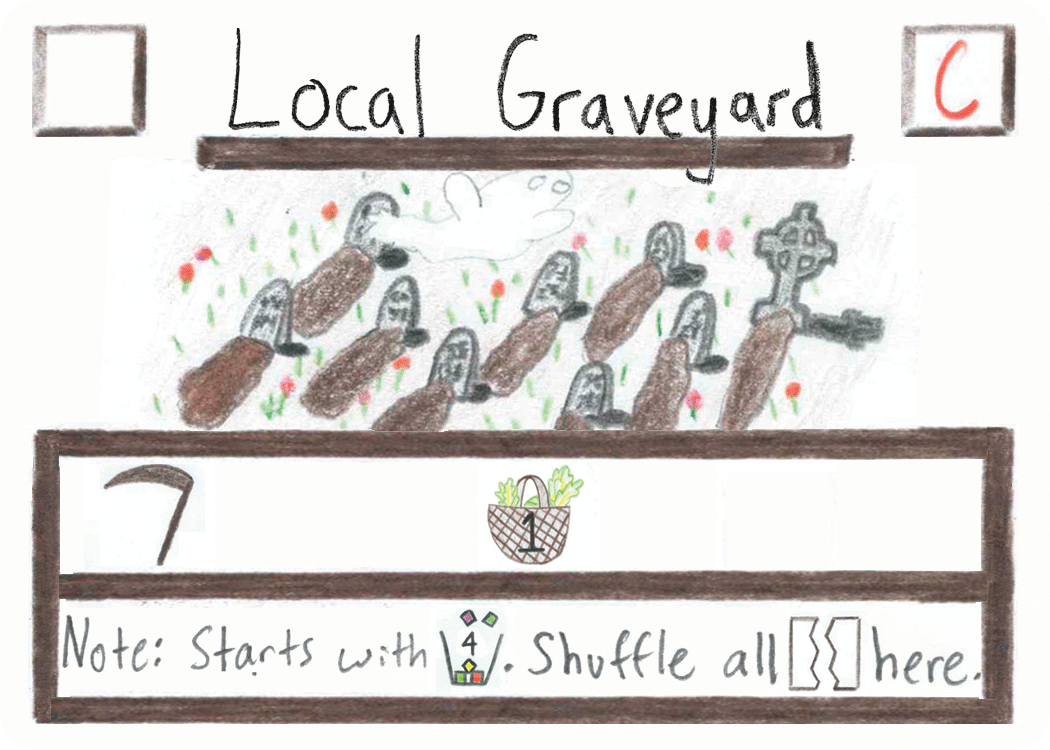 Local Graveyard
C
1
Note: Starts with 4. Shuffle all here.